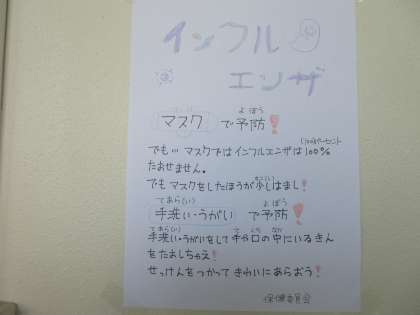 インフル
エンザ
マスク で予防!
でも… マスクではインフルエンザは100%
たおせません。
でもマスクをしたほうが少しはまし!
手洗い・うがい で予防!
手洗い・うがいをして手や口の中にいるきん
をたおしちゃえ!
せっけんをつかってきれいにあらおう!
保健委員会